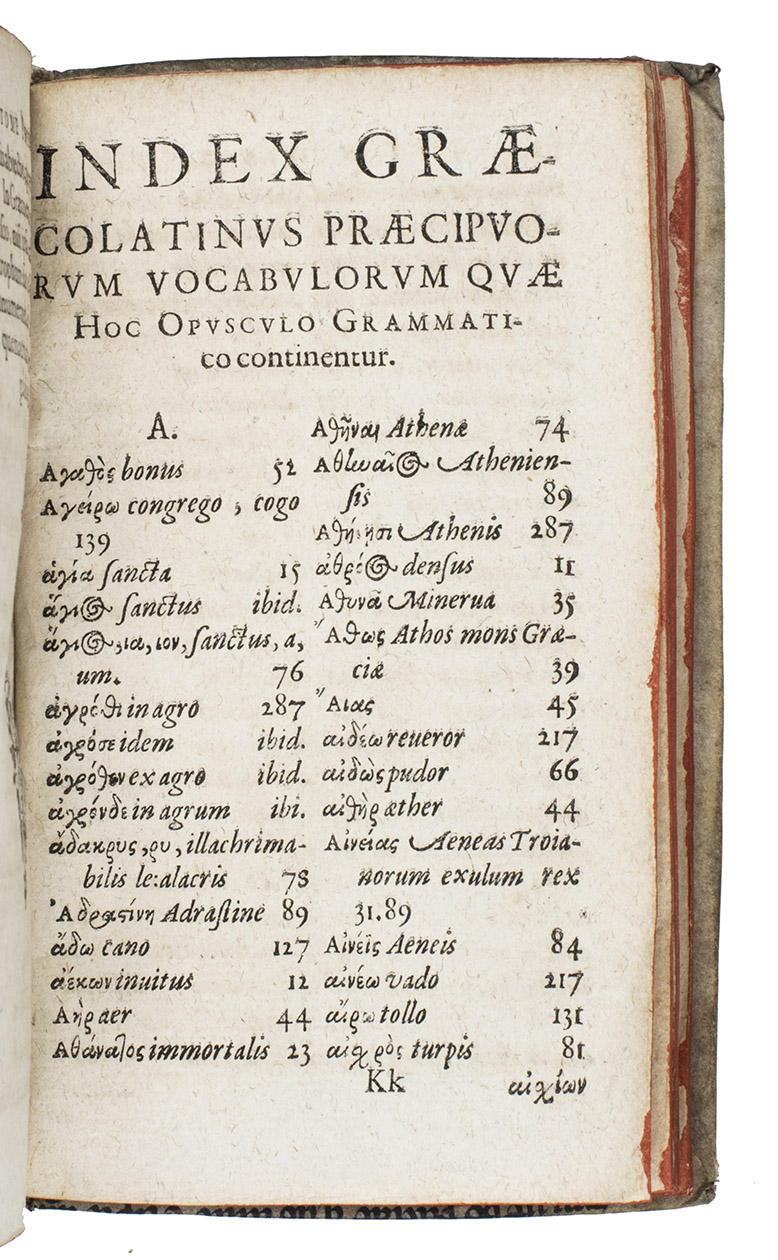 INDEX GRÆ-
COLATINVS PRÆCIPVO-
RVM VOCABVLORVM QVÆ
HOC OPVSCVLO GRAMMATI-
co continentur.
A.
Αγαθὸς bonus 52
Αγείρω congrego, cogo
139
ἁγία sancta 15
ἅγιος sanctus ibid.
ἅγιος, ια, ιον, sanctus, a,
um. 76
ἀγρόθι in agro 287
ἀγρόσε idem ibid.
ἀγρόθεν ex agro ibid.
ἀγρόνδε in agrum ibi.
ἄδακρυς, ρυ, illachrima-
bilis le: alacris 78
Ἀδραστίνη Adrastine 89
ἄδω cano 127
ἀέκων inuitus 12
Αὴρ aer 44
Αθάνατος immortalis 23
Αθῆναι Athenæ 74
Αθηναῖος Athenien-
sis 89
Αθήνησι Athenis 287
ἀθρόος densus 11
Αθηνᾶ Minerua 35
Ἄθως Athos mons Græ-
ciæ 39
Ἄιας 45
αἰδέω reueror 217
αἰδὼς pudor 66
αἰθὴρ æther 44
Αἰνείας Aeneas Troia-
norum exulum rex
31.89
Αἰνέϊς Aeneis 84
αἰνέω vado 217
αἴρω tollo 131
αἰσχρὸς turpis 81
Kk αἰσχίων